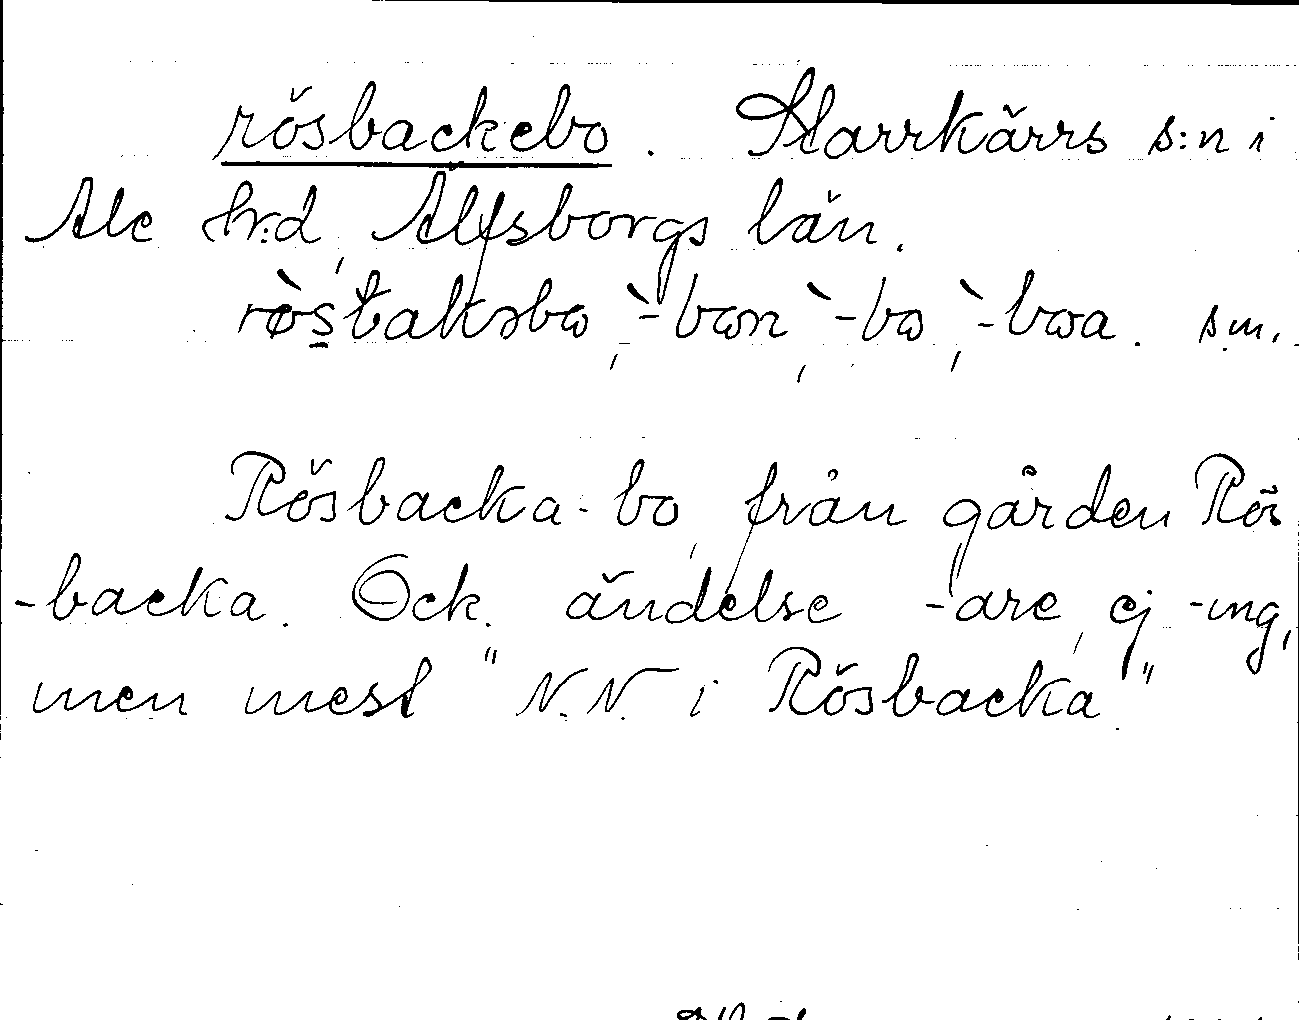 rösbackebo. Starrkärrs s:n i
Ale h:d, Älfsborgs län.
-bon, -bo, -boa. sm.
Rösbacka-bo, från gården Rös
-backa. Ock. ändelse -are, ej -ing,
men mest "N.N. i Rösbacka"